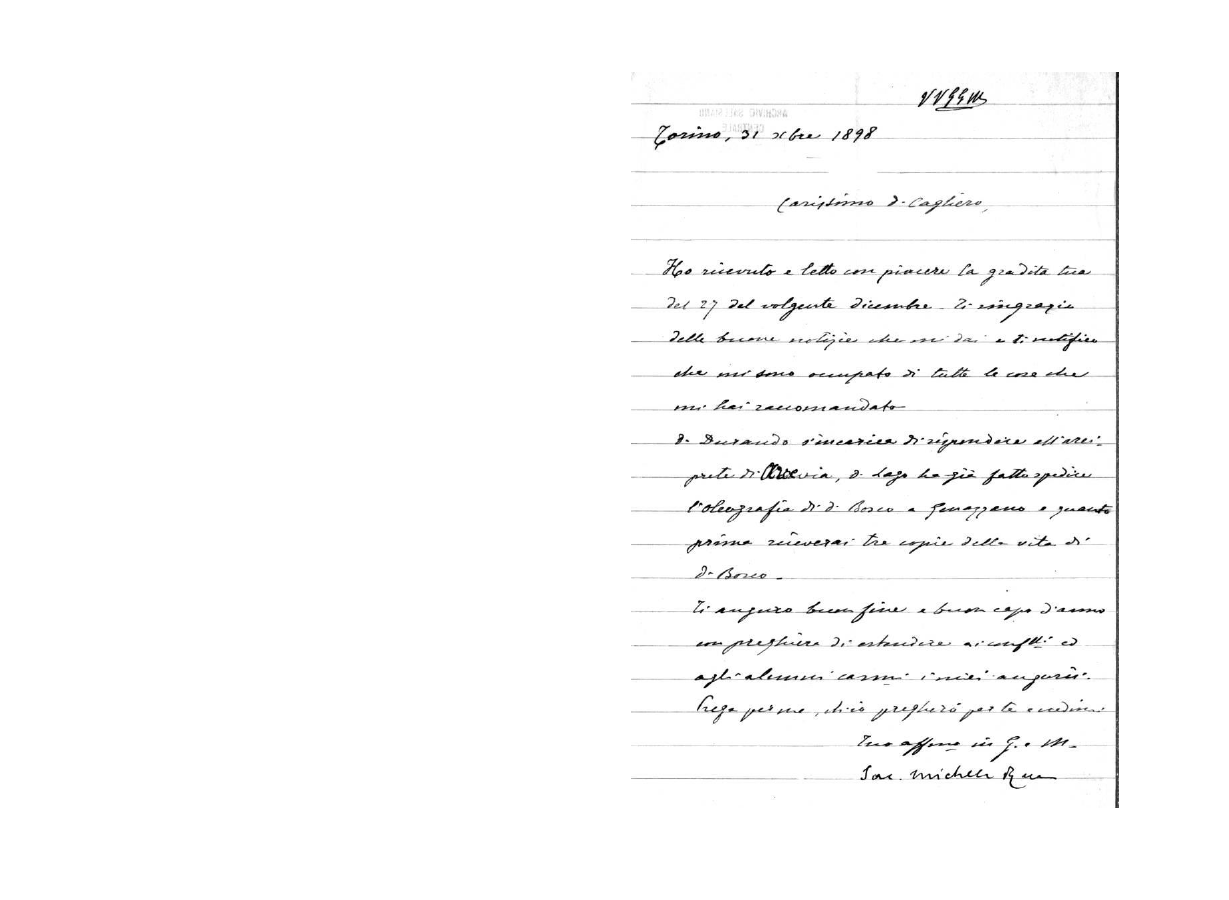 V V G G M
ARCHIVIO SALESIANO
CENTRALE
Torino, 31 xbre 1898
Carissimo d. Cagliero,
Ho ricevuto e letto con piacere la gradita tua
del 27 del volgente dicembre. Ti ringrazio
delle buone notizie che mi dai e ti notifico
che mi sono occupato di tutte le cose che
mi hai raccomandato
d. Durando s'incarica di rispondere all'arci-
prete di Arcevia, d. Lago ha già fatto spedire
l'oleografia di d. Bosco a Genazzano e quanto
prima riceverai tre copie della vita di
d. Bosco.
Ti auguro buon fine e buon capo d'anno
con preghiera di estendere ai conflli ed
agli alunni carmi i miei augurii.
Prega per me, ch'io pregherò per te e credimi
Tuo affmo in G. e M.
Sac. Michele Rua